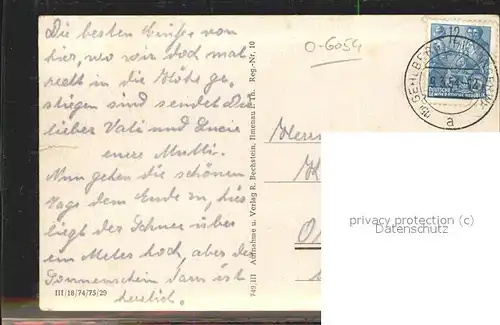 Die besten Grüße von
hier, wo wir doch mal
recht in die Höhe ge-
stiegen sind sendet Dir
lieber Vati und Lucie
eure Mutti.
Nun gehen die schönen
Tage dem Ende zu, hier
liegt der Schnee über
ein Meter hoch, aber der
Sonnenschein dazu ist
herrlich.
III/18/74/75/29
749,III Aufnahme u. Verlag R. Bechstein, Ilmenau i. Th. Reg.-Nr. 10
O-6054
12
GEHLBERG
a
DEUTSCHE
Herrn
privacy protection (c)
Datenschutz